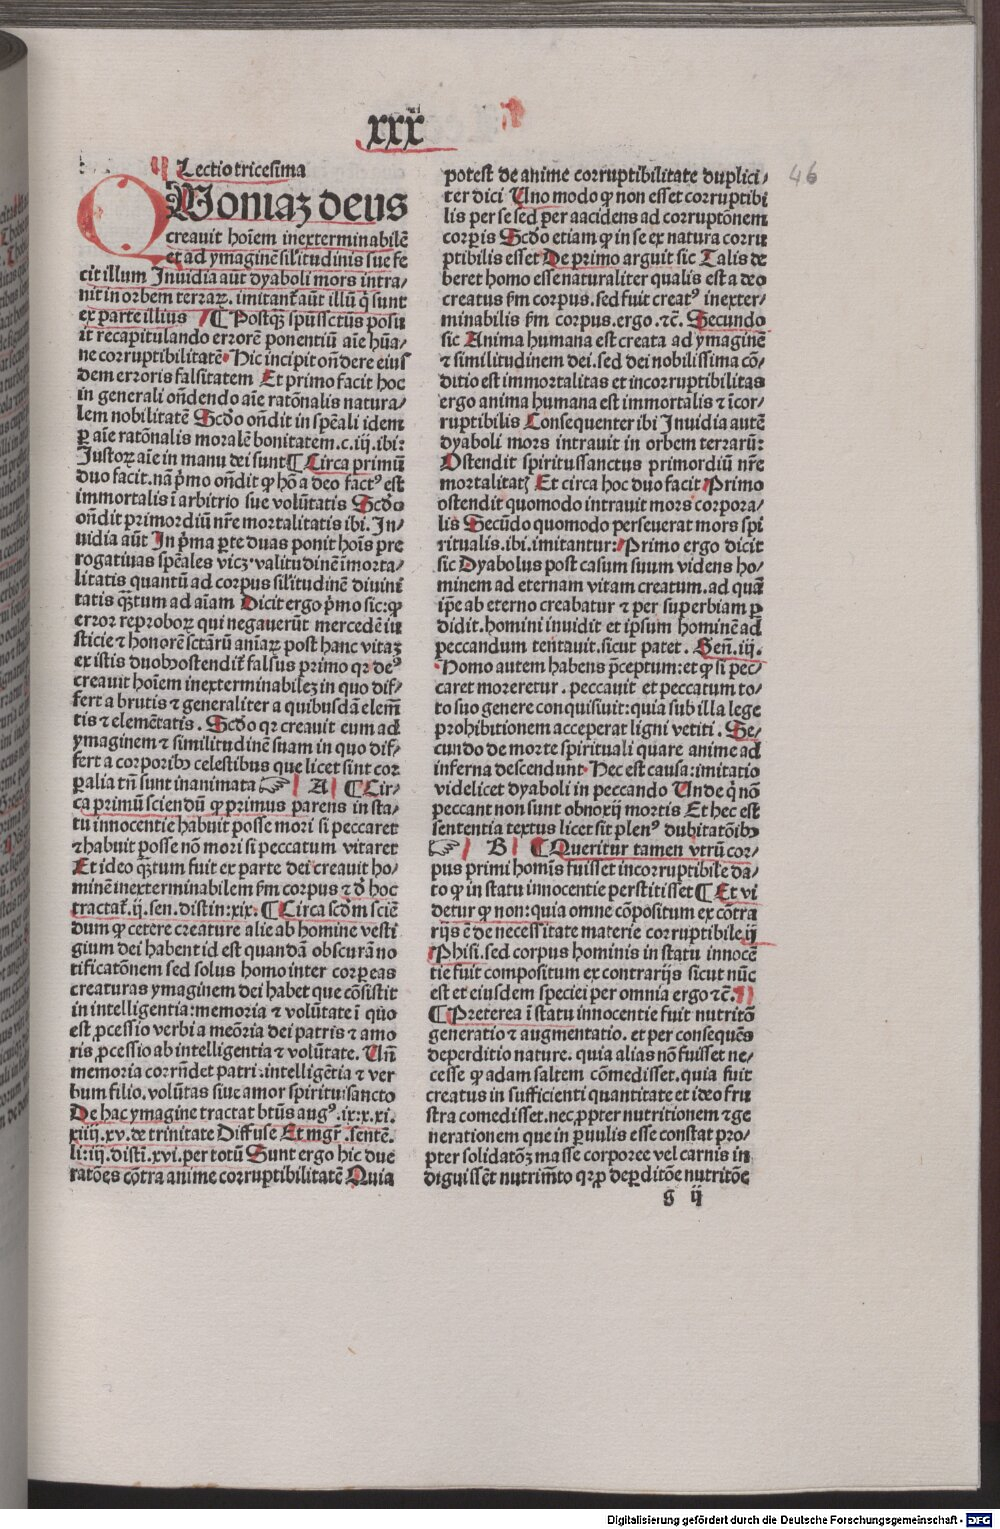 xxx
46
Lectio tricesima
QVoniaꝫ deus
creauit hoı̄em inexterminabilē
et ad ymaginē sil'itudinis sue fe
cit illum Inuidia aūt dyaboli mors intra⸗
uit in orbem terraꝝ. imitant᷑ aūt illū q̄ sunt
ex parte illius ¶ Postqꝫ spūssctūs posu
it recapitulando errorē ponentiū aı̄e hūa⸗
ne corruptibilitatē Hic incipit on̄dere eius
dem erroris falsitatem Et primo facit hoc
in generali on̄dendo aı̄e ratōnalis natura⸗
lem nobilitatē Scd̄o on̄dit in spēali idem
ꝑ aı̄e ratōnalis moralē bonitatem.c.iij.ibi:
Iustoꝝ aı̄e in manu dei sunt ¶ Circa primū
duo facit.nā p̄mo on̄dit ꝙ hō a deo factꝰ est
immortalis ī arbitrio sue volūtatis Scd̄o
on̄dit primordiū nr̄e mortalitatis ibi. In⸗
uidia aūt In p̄ma ꝑte duas ponit hoı̄s pre
rogatiuas spēales vicꝫ validitudinē īmorta⸗
litatis quantū ad corpus sil'itudinē diuini
tatis qꝫtum ad aı̄am Dicit ergo p̄mo sic:ꝙ
error reproboꝝ qui negauerūt mercedē iu
sticie ⁊ honorē sctārū aı̄aꝝ post hanc vitaꝫ
ex istis duobꝫ ostendit᷑ falsus primo qꝛ deꝰ
creauit hoı̄em inexterminabileꝫ in quo dif⸗
fert a brutis ⁊ generaliter a quibusdā elem̄
tis ⁊ elemētatis. Scd̄o qꝛ creauit eum ad
ymaginem ⁊ similitudinē suam in quo dif⸗
fert a corporibꝫ celestibus que licet sint cor
palia tn̄ sunt inanimata ☞ A ¶ Cir⸗
ca primū sciendū ꝙ primus parens in sta⸗
tu innocentie habuit posse mori si peccaret
⁊ habuit posse nō mori si peccatum vitaret
Et ideo qꝫtum fuit ex parte dei creauit ho⸗
minē inexterminabilem ẜm corpus ⁊ d̄ hoc
tractat᷑.ij.sen.distin:xix. ¶ Circa scd̄m sciē
dum ꝙ cetere creature alie ab homine vesti
gium dei habent id est quandā obscurā no
tificatōnem sed solus homo inter corpeas
creaturas ymaginem dei habet que cōsistit
in intelligentia:memoria ⁊ volūtate ī quo
est ꝓcessio verbi a meōria dei patris ⁊ amo
ris ꝓcessio ab intelligentia ⁊ volūtate. Un̄
memoria corrn̄det patri.intelligētia ⁊ ver
bum filio. volūtas siue amor spiritu sancto
De hac ymagine tractat bt̄us augꝰ.ix:x.xi.
xiiij.xv.de trinitate Diffuse Et mgr̄.sentē.
li:iij.disti.xvi.per totū Sunt ergo hic due
ratōes cōtra anime corruptibilitatē Quia
potest de anime corruptibilitate duplici⸗
ter dici Uno modo ꝙ non esset corruptibi
lis per se sed per aacidens ad corruptōnem
corpꝛis Scd̄o etiam ꝙ in se ex natura corru
ptibilis esset De primo arguit sic Talis de
beret homo esse naturaliter qualis est a deo
creatus ẜm corpus.sed fuit creatꝰ inexter⸗
minabilis ẜm corpus.ergo.⁊c̄. Secundo
sic Anima humana est creata ad ymaginē
⁊ similitudinem dei.sed dei nobilissima cō⸗
ditio est immortalitas et incorruptibilitas
ergo anima humana est immortalis ⁊ īcor⸗
ruptibilis Consequenter ibi Inuidia autē
dyaboli mors intrauit in orbem terrarū:
Ostendit spiritussanctus primordiū nr̄e
mortalitatꝭ Et circa hoc duo facit Primo
ostendit quomodo intrauit mors corpora⸗
lis Secūdo quomodo perseuerat mors spi
ritualis.ibi.imitantur: Primo ergo dicit
sic Dyabolus post casum suum videns ho⸗
minem ad eternam vitam creatum.ad quā
ip̄e ab eterno creabatur ⁊ per superbiam ꝑ
didit.homini inuidit et ipsum hominē ad
peccandum tentauit.sicut patet. Gen̄.iij.
Homo autem habens p̄ceptum:et ꝙ si pec⸗
caret moreretur. peccauit et peccatum to⸗
to suo genere conquisiuit:quia sub illa lege
prohibitionem acceperat ligni vetiti. Se⸗
cundo de morte spirituali quare anime ad
inferna descendunt Hec est causa:imitatio
videlicet dyaboli in peccando Unde q̄ nō
peccant non sunt obnoxij mortis Et hec est
sententia textus licet sit plenꝰ dubitatōibꝫ
☞ B ¶ Queritur tamen vtrū cor⸗
pus primi homīs fuisset incorruptibile da⸗
to ꝙ in statu innocentie perstitisset ¶ Et vi
detur ꝙ non:quia omne cōpositum ex cōtra
rijs ē de necessitate materie corruptibile.ij
Phisi.sed corpus hominis in statu innocē
tie fuit compositum ex contrarijs sicut nūc
est et eiusdem speciei per omnia ergo ⁊c̄.
¶ Preterea ī statu innocentie fuit nutritō
generatio ⁊ augmentatio. et per consequēs
deperditio nature. quia alias nō fuisset ne⸗
cesse ꝙ adam saltem cōmedisset.quia fuit
creatus in sufficienti quantitate et ideo fru
stra comedisset.nec ꝓpter nutritionem ⁊ ge
nerationem que in ꝑuulis esse constat pro⸗
pter solidatōꝫ masse corporee vel carnis in
diguissēt nutrim̄to qꝛ ꝓ deꝑditōe nutritōe
g ij
Digitalisierung gefördert durch die Deutsche Forschungsgemeinschaft - DFG